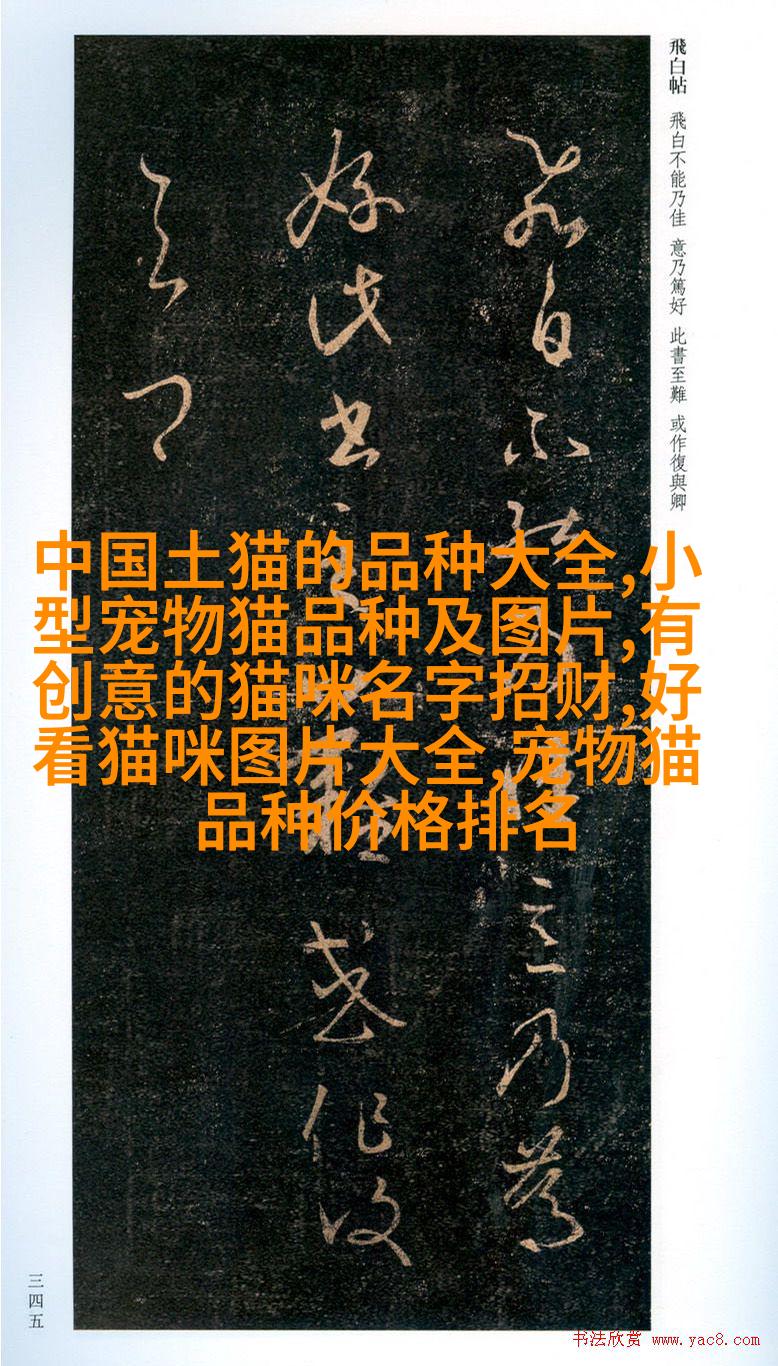 飛白帖 飛白不能乃佳 意乃篤好 此書至難 或作復與卿
飛白不能乃佳意乃篤
好此書至難或作復
與卿
中国土猫的品种大全,小
型宠物猫品种及图片,有
创意的猫咪名字招财,好
看猫咪图片大全,宠物猫
品种价格排名
三四五
书法欣赏 www.yac8.com